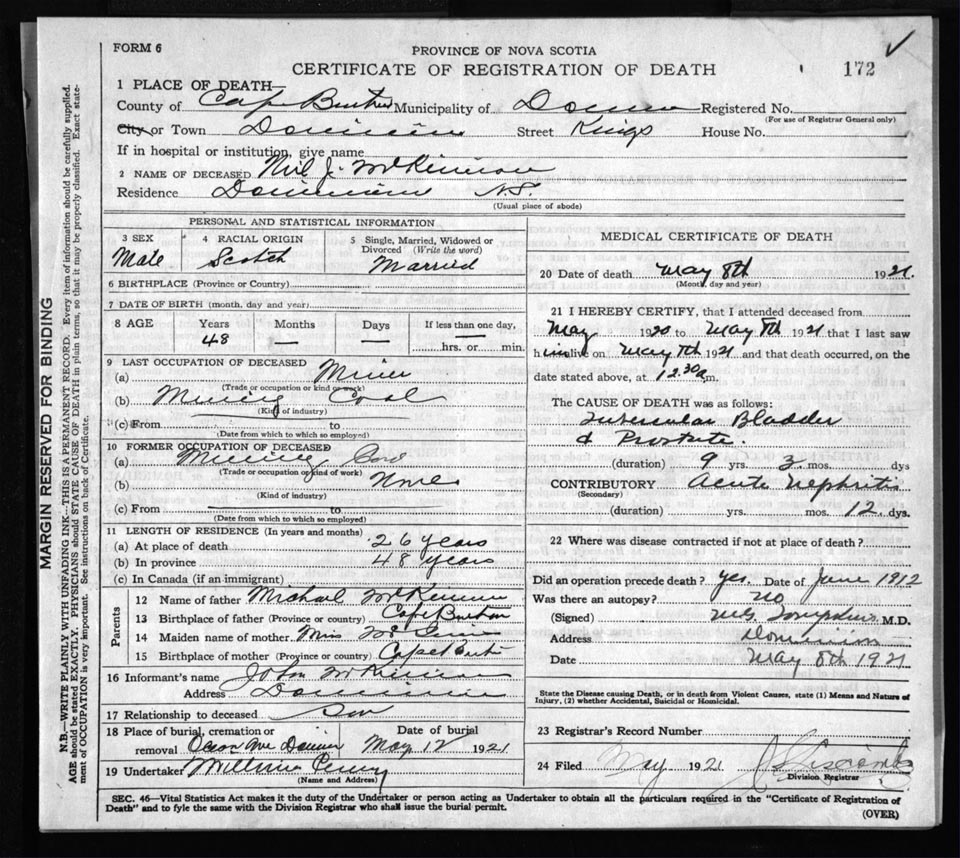 FORM 6
PROVINCE OF NOVA SCOTIA
CERTIFICATE OF REGISTRATION OF DEATH
172
1 PLACE OF DEATH—
County of Cape Breton Municipality of Registered No.
(For use of Registrar General only)
City or Town Dominion Street Kings House No.
If in hospital or institution, give name
2 NAME OF DECEASED Neil J. McKinnon
Residence Dominion N.S.
(Usual place of abode)
PERSONAL AND STATISTICAL INFORMATION
3 SEX
Male
4 RACIAL ORIGIN
Scotch
5 Single, Married, Widowed or
Divorced (Write the word)
Married
6 BIRTHPLACE (Province or Country)
7 DATE OF BIRTH (month, day and year)
8 AGE Years Months Days If less than one day,
48 — — hrs. or min.
9 LAST OCCUPATION OF DECEASED
(a) Miner
(Trade or occupation or kind of work)
(b) Mining Coal
(Kind of industry)
(c) From to
(Date from which to which so employed)
10 FORMER OCCUPATION OF DECEASED
(a) Mining Coal
(Trade or occupation or kind of work)
(b)
(Kind of industry)
(c) From to
(Date from which to which so employed)
11 LENGTH OF RESIDENCE (In years and months)
(a) At place of death 26 years
(b) In province 48 years
(c) In Canada (if an immigrant)
Parents
12 Name of father Michael McKinnon
13 Birthplace of father (Province or country) Cape Breton
14 Maiden name of mother Miss
15 Birthplace of mother (Province or country) Cape Breton
16 Informant's name John McKinnon
Address Dominion
17 Relationship to deceased son
18 Place of burial, cremation or
removal Ocean Ave Dominion
Date of burial
May 12 1921
19 Undertaker William
(Name and Address)
MEDICAL CERTIFICATE OF DEATH
20 Date of death May 8th 1921.
(Month, day and year)
21 I HEREBY CERTIFY, that I attended deceased from
May 1920 to May 8th 1921 that I last saw
him alive on May 7th 1921 and that death occurred, on the
date stated above, at 12.30 a m.
The CAUSE OF DEATH was as follows:
Tubercular Bladder
& Prostate.
(duration) 9 yrs. 3 mos. dys
CONTRIBUTORY Acute Nephritis
(Secondary)
(duration) yrs. mos. 12 dys.
22 Where was disease contracted if not at place of death?
Did an operation precede death? yes. Date of June 1912
Was there an autopsy? No
(Signed) Tompkins M.D.
Address Dominion
Date May 8th 1921
State the Disease causing Death, or in death from Violent Causes, state (1) Means and Nature of
Injury, (2) whether Accidental, Suicidal or Homicidal.
23 Registrar's Record Number
24 Filed May 1921
Division Registrar
SEC. 46—Vital Statistics Act makes it the duty of the Undertaker or person acting as Undertaker to obtain all the particulars required in the "Certificate of Registration of
Death" and to fyle the same with the Division Registrar who shall issue the burial permit.
(OVER)
MARGIN RESERVED FOR BINDING
N.B.—WRITE PLAINLY WITH UNFADING INK—THIS IS A PERMANENT RECORD. Every item of information should be carefully supplied.
AGE should be stated EXACTLY. PHYSICIANS should STATE CAUSE OF DEATH in plain terms, so that it may be properly classified. Exact state-
ment of OCCUPATION is very important. See instructions on back of Certificate.